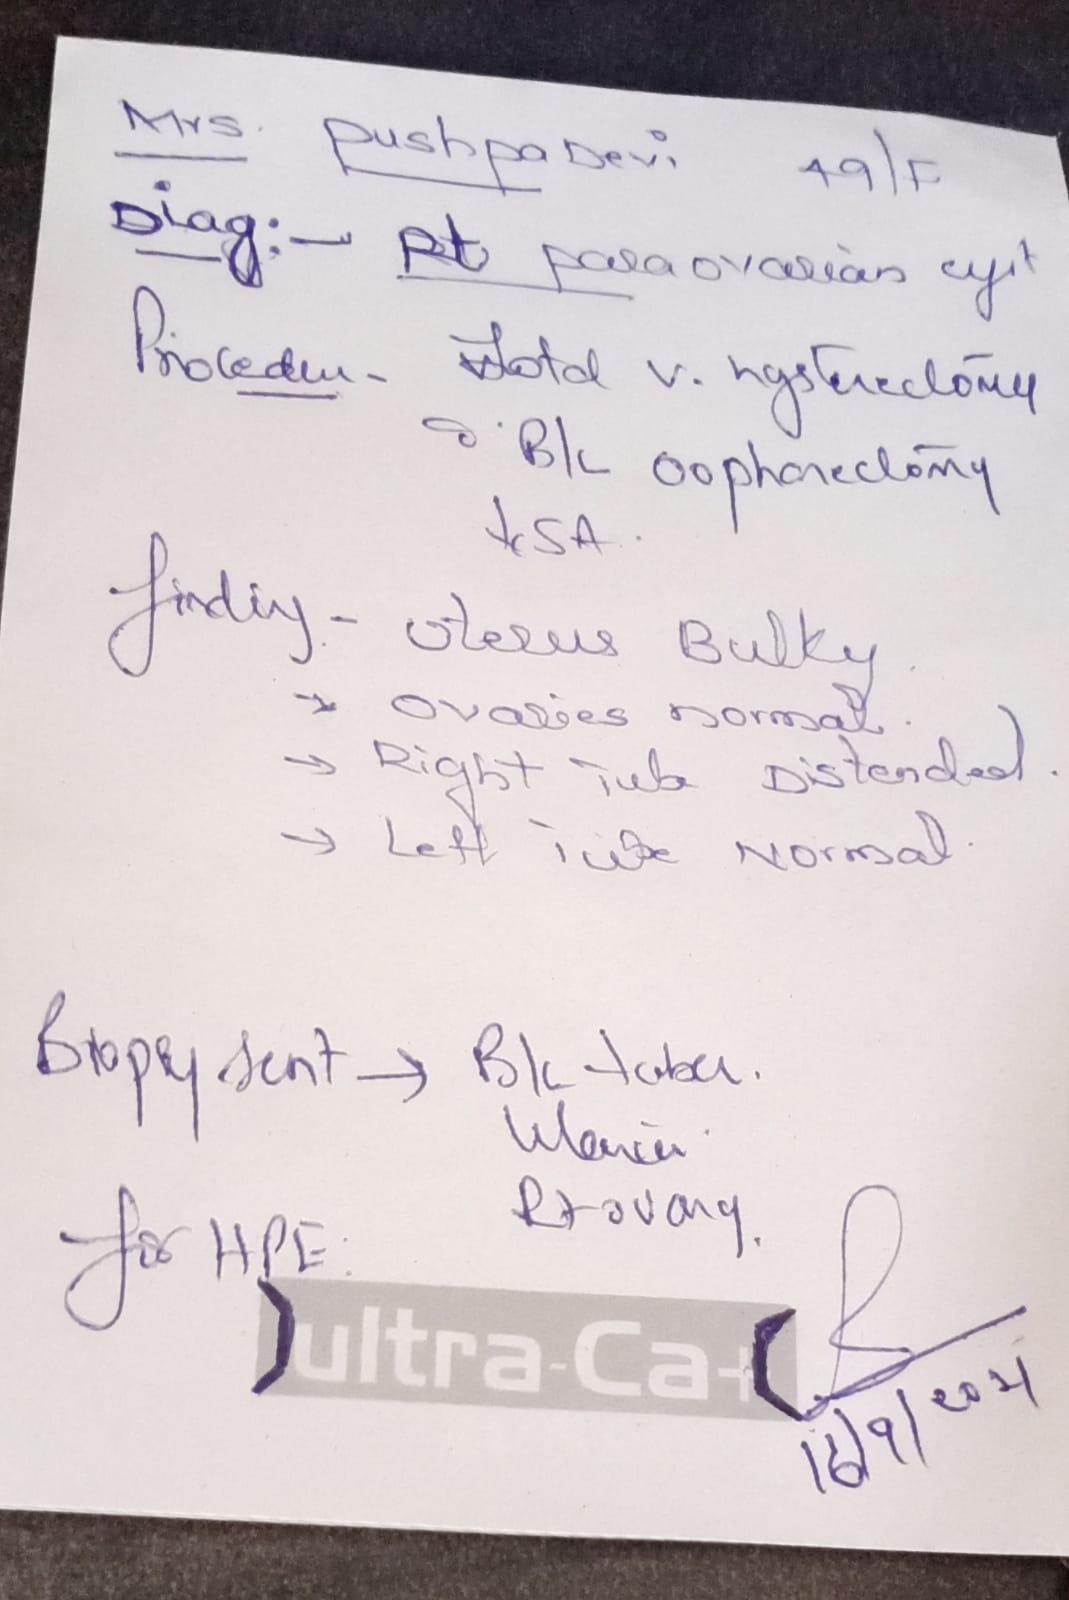 Mrs. pushpa Devi 49/F
Diag:- Rt paraovarian cyst
Procedure - Total v. hysterectomy
B/L oophorectomy
SA.
finding - Uterus Bulky.
→ ovaries normal.
→ Right Tube Distended.
→ Left Tube Normal.
Biopsy sent → B/L tubes.
Rt ovary.
for HPE:
ultra-Ca+
16/9/2021